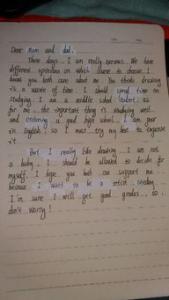 Dear Mum and dad.
These days. I am really nervous. We have
different opinions on which course to choose. I
know you both care about me. You think drawing
is a waste of time. I should spend time on
studying. I am a middle school student. So
for me, the important thing is studying well
and entering a good high school. I am poor
in English, so I must try my best to improve
it.
But I really like drawing. I am not
a baby. I should be allowed to decide for
myself. I hope you both can support me
because I want to be a artist
I'm sure I will get good grades. So,
don't worry!